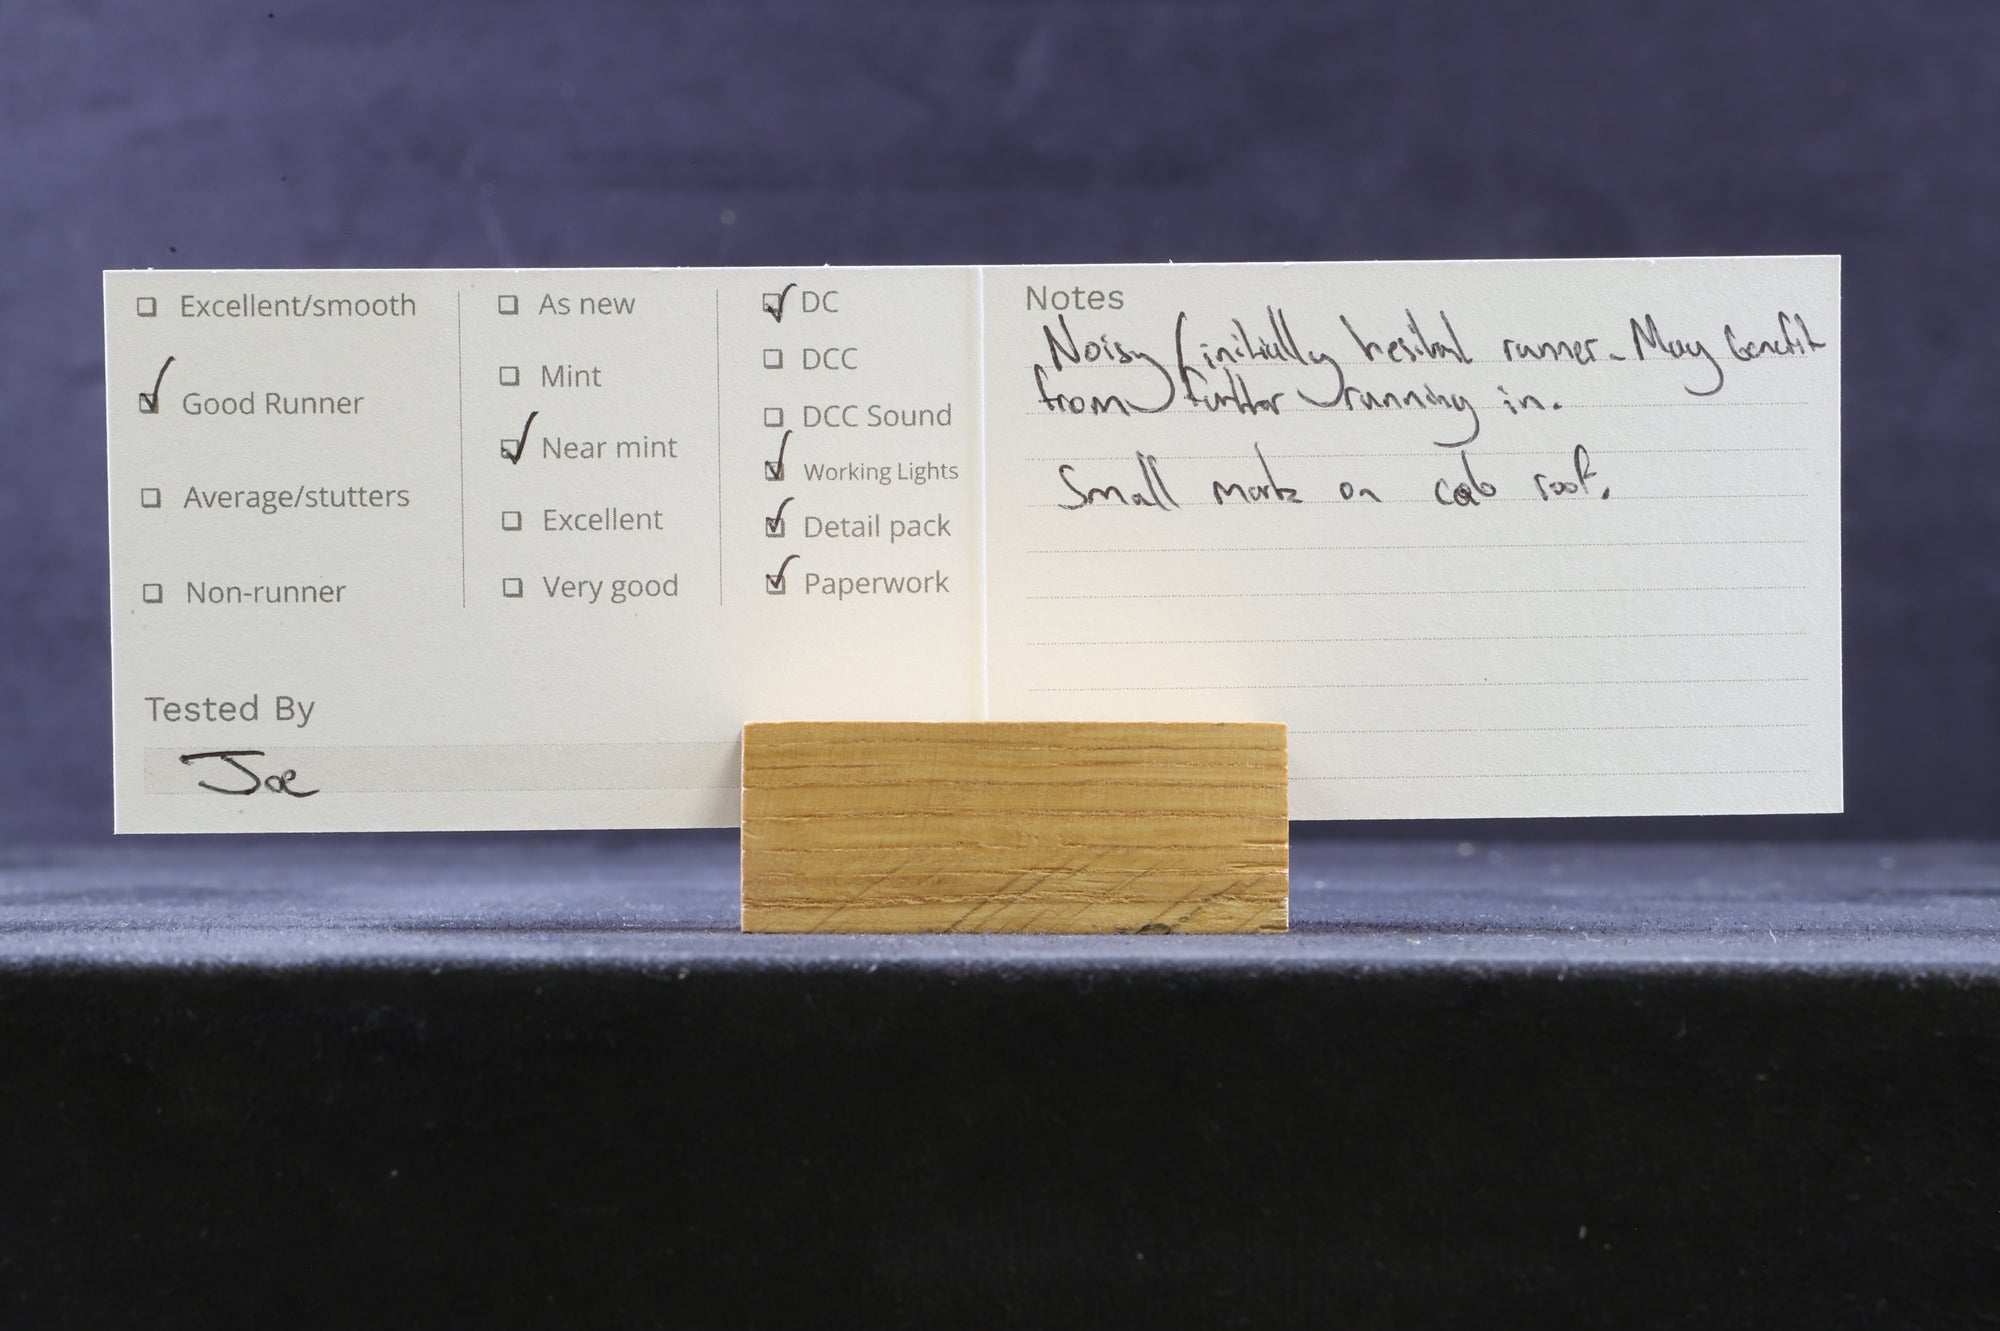 ☐ Excellent/smooth
☑ Good Runner
☐ Average/stutters
☐ Non-runner
☐ As new
☐ Mint
☑ Near mint
☐ Excellent
☐ Very good
☑ DC
☐ DCC
☐ DCC Sound
☑ Working Lights
☑ Detail pack
☑ Paperwork
Tested By
Joe
Notes
Noisy / initially hesitant runner. May benefit
from further running in.
Small mark on cab roof.